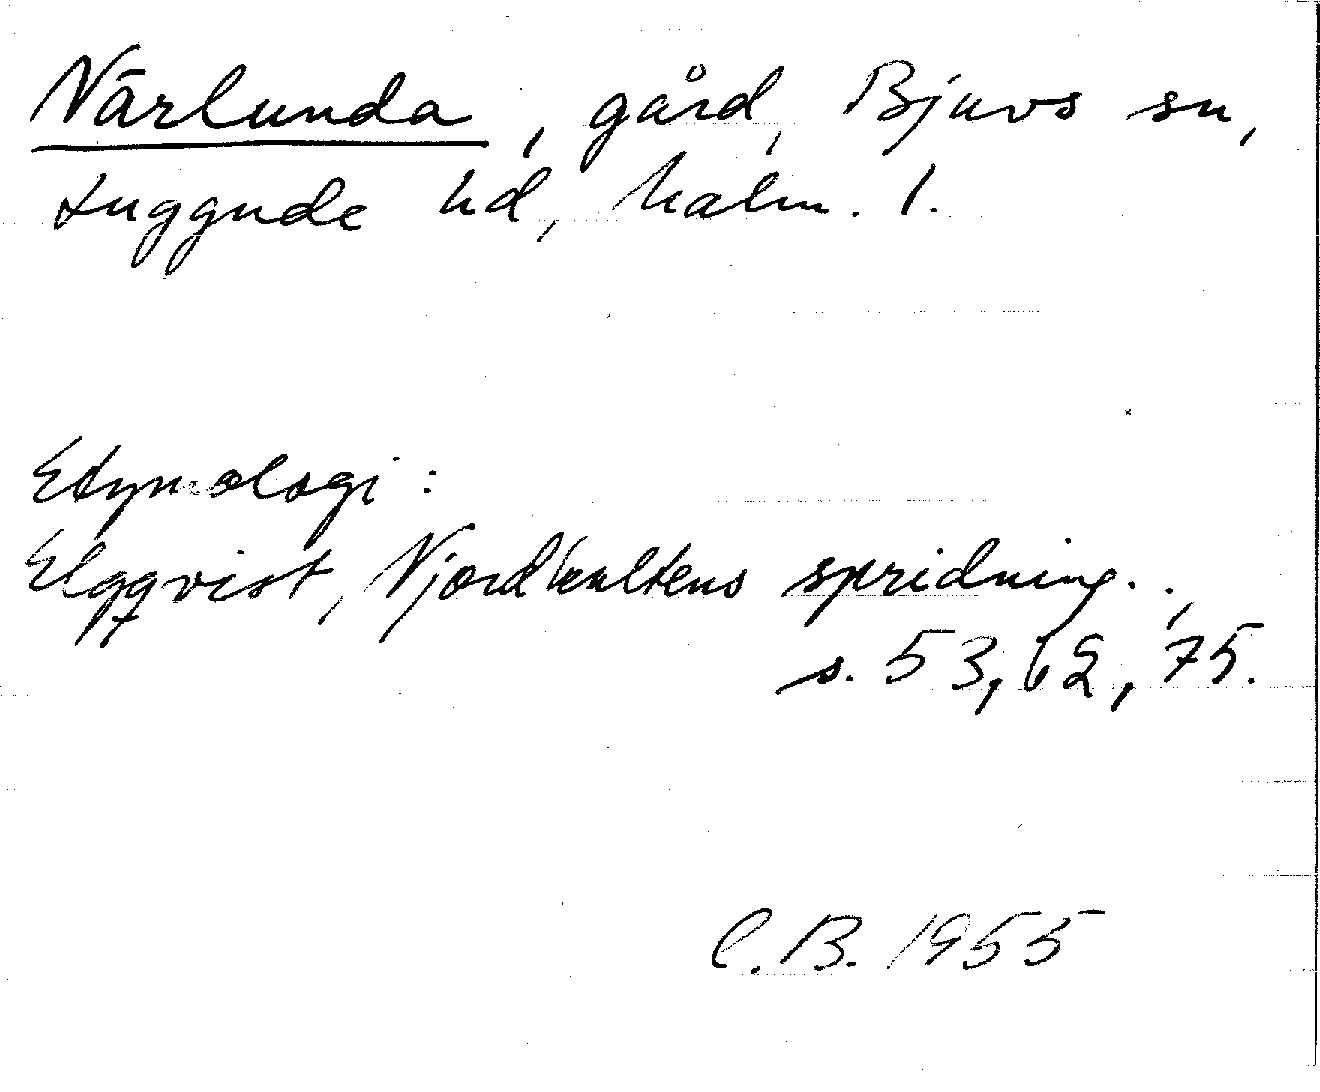 Närlunda, gård, Bjuvs sn,
Luggude hd, Malm. l.
Etymologi:
Elgqvist, Njordkultens spridning..,
s. 53, 62, 75.
C.B. 1955